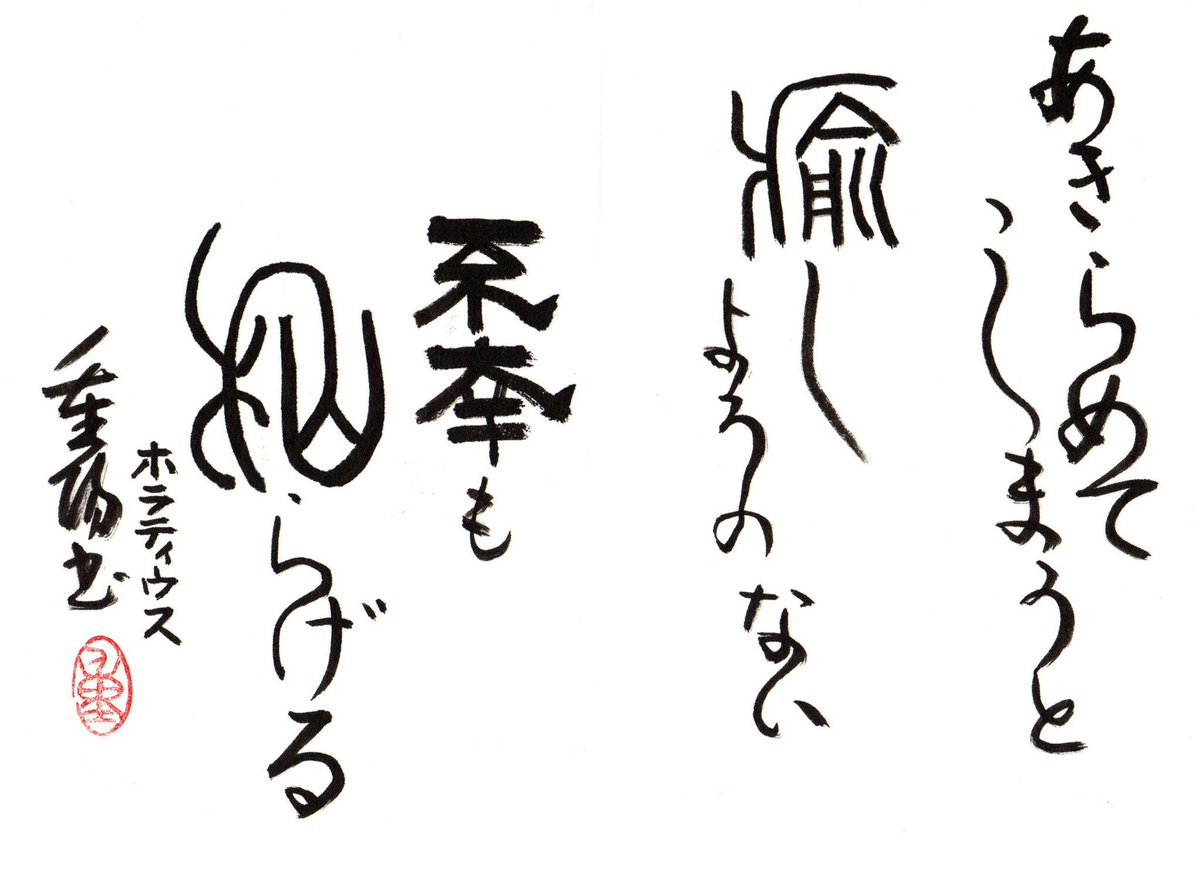 あきらめて
しまうと
癒し
ようのない
不幸も
和らげる
ホラティウス
重陽書